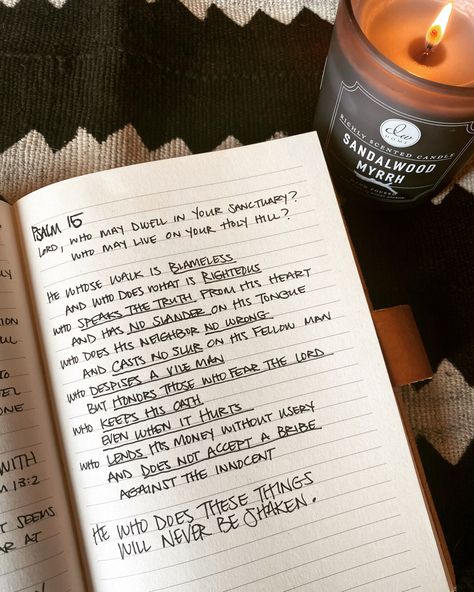 PSALM 15
LORD, WHO MAY DWELL IN YOUR SANCTUARY?
WHO MAY LIVE ON YOUR HOLY HILL?
HE WHOSE WALK IS BLAMELESS
AND WHO DOES WHAT IS RIGHTEOUS
WHO SPEAKS THE TRUTH FROM HIS HEART
AND HAS NO SLANDER ON HIS TONGUE
WHO DOES HIS NEIGHBOR NO WRONG
AND CASTS NO SLUR ON HIS FELLOW MAN
WHO DESPISES A VILE MAN
BUT HONORS THOSE WHO FEAR THE LORD
WHO KEEPS HIS OATH
EVEN WHEN IT HURTS
WHO LENDS HIS MONEY WITHOUT USERY
AND DOES NOT ACCEPT A BRIBE
AGAINST THE INNOCENT
HE WHO DOES THESE THINGS
WILL NEVER BE SHAKEN.
WITH
13:2
SEEMS
AT
DW
HOME
RICHLY SCENTED CANDLE
SANDALWOOD
MYRRH